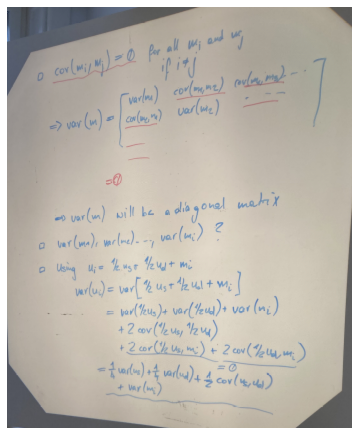 o cov(mᵢ, mⱼ) = 0 for all mᵢ and mⱼ
if i≠j
=> var(m) = [ var(m₁) cov(m₁,m₂) cov(m₁,m₃) ... ]
cov(m₁,m₂) var(m₂) ...
=0
=> var(m) will be a diagonal matrix
o var(m₁), var(m₂) ..., var(mᵢ) ?
o Using uᵢ = ½ uₛ + ½ u_d + mᵢ
var(uᵢ) = var[½ uₛ + ½ u_d + mᵢ]
= var(½uₛ) + var(½u_d) + var(mᵢ)
+ 2 cov(½ uₛ, ½ u_d)
+ 2 cov(½ uₛ, mᵢ) + 2 cov(½ u_d, mᵢ)
=0
= ¼ var(uₛ) + ¼ var(u_d) + ½ cov(uₛ, u_d)
+ var(mᵢ)